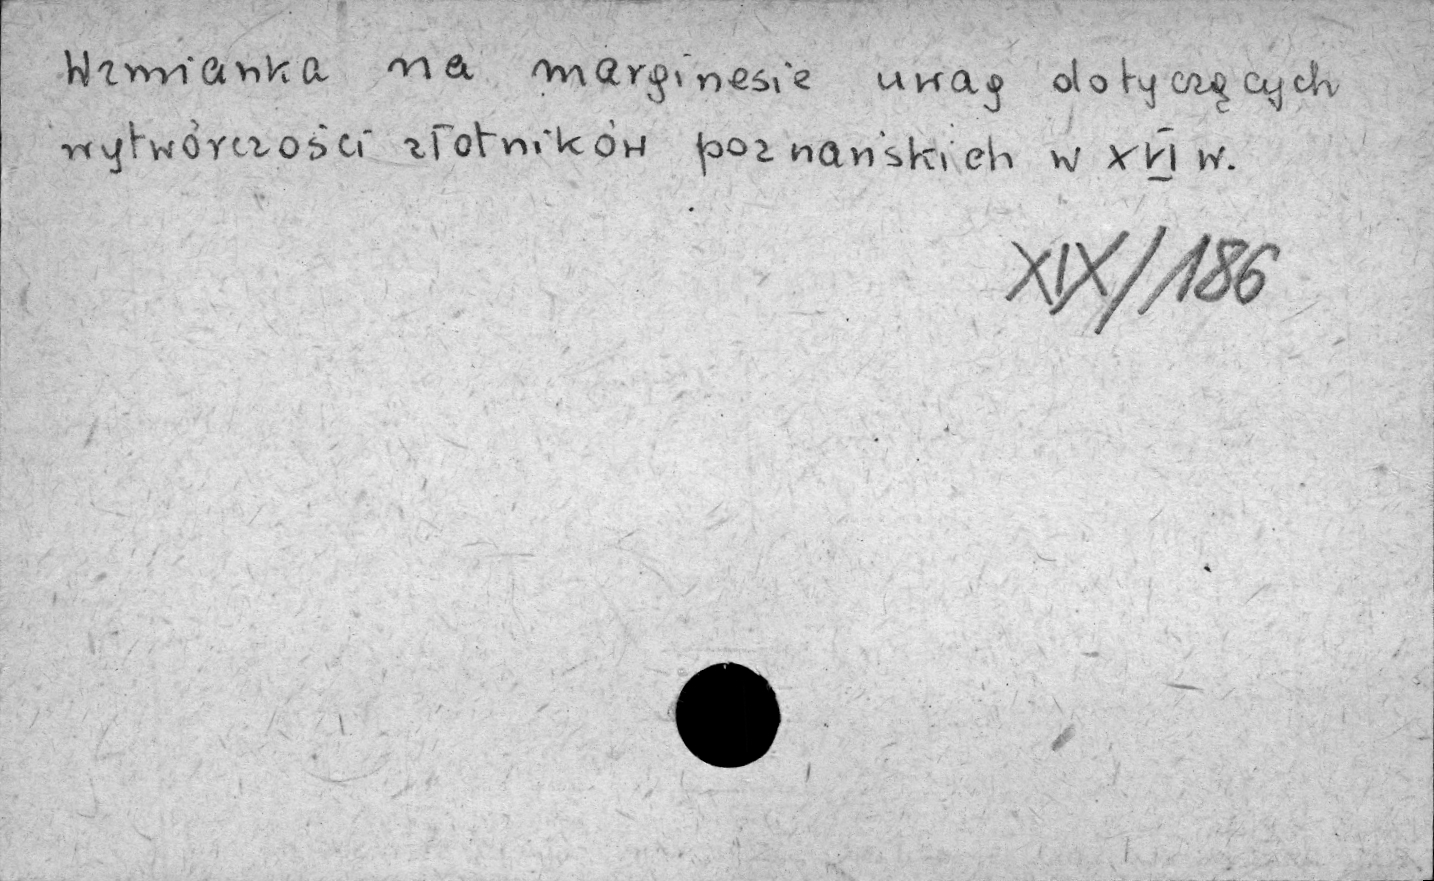 Wzmianka na marginesie uwag dotyczących
wytwórczości złotników poznańskich w XVI w.
XIX/186